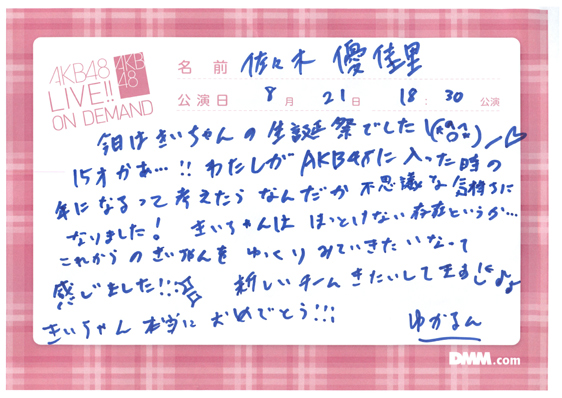 AKB48
LIVE!!
ON DEMAND
AKB
48
名前 佐々木 優佳里
公演日 8月 21日 18:30 公演
今日はきぃちゃんの生誕祭でした
15才かぁ…!! わたしがAKB48に入った時の
年になるって考えたらなんだか不思議な気持ちに
なりました! きぃちゃんは ほっとけない存在というか…
これからのきぃちゃんを ゆっくりみていきたいなって
感じました!!! 新しいチームきたいしてます!
きぃちゃん 本当に おめでとう!!!
ゆかるん
DMM.com